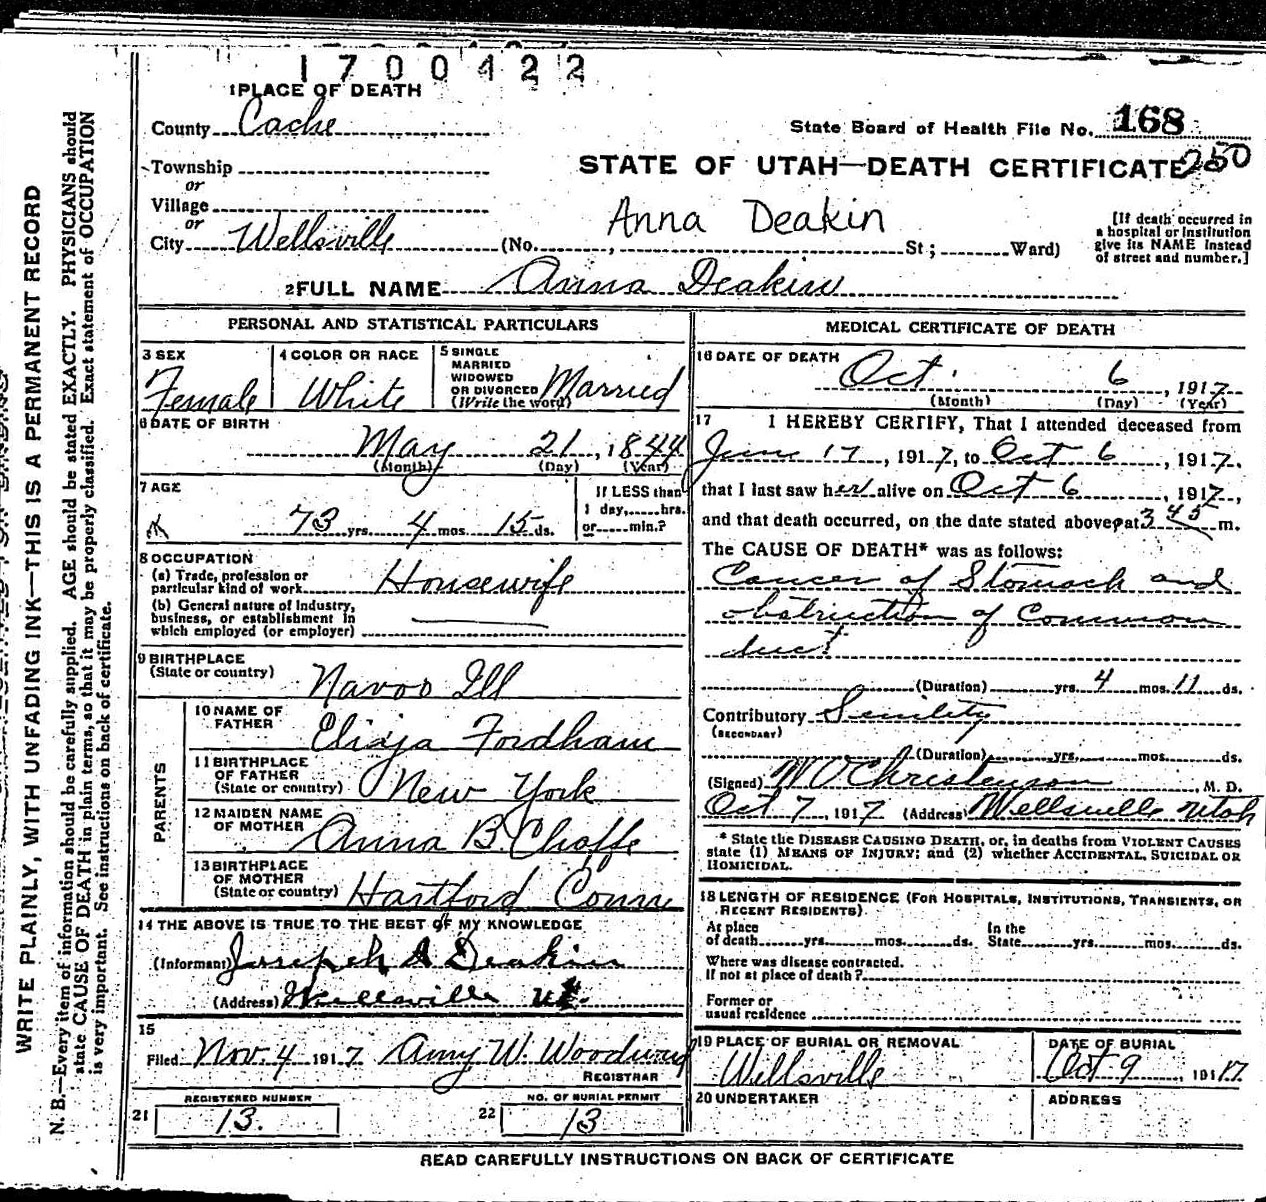 1700422
1 PLACE OF DEATH
County Cache
State Board of Health File No. 168
Township
or
STATE OF UTAH—DEATH CERTIFICATE 250
Village
or
Anna Deakin
City Wellsville (No. , St; Ward)
[If death occurred in
a hospital or institution
give its NAME instead
of street and number.]
2 FULL NAME Anna Deakin
PERSONAL AND STATISTICAL PARTICULARS
3 SEX
Female
4 COLOR OR RACE
White
5 SINGLE
MARRIED
WIDOWED
OR DIVORCED
(Write the word) Married
6 DATE OF BIRTH
May 21, 1844
(Month) (Day) (Year)
7 AGE
73 yrs. 4 mos. 15 ds.
If LESS than
1 day, hrs.
or min.?
8 OCCUPATION
(a) Trade, profession or
particular kind of work Housewife
(b) General nature of industry,
business, or establishment in
which employed (or employer)
9 BIRTHPLACE
(State or country) Navoo Ill
PARENTS
10 NAME OF
FATHER Eliaja Fordham
11 BIRTHPLACE
OF FATHER
(State or country) New York
12 MAIDEN NAME
OF MOTHER Anna B. Chaffe
13 BIRTHPLACE
OF MOTHER
(State or country) Hartford Conn
14 THE ABOVE IS TRUE TO THE BEST OF MY KNOWLEDGE
(Informant) Joseph A Deakin
(Address) Wellsville Ut.
15
Filed Nov. 4 1917 Amy W. Woodward
REGISTRAR
REGISTERED NUMBER
21 13.
NO. OF BURIAL PERMIT
22 13
MEDICAL CERTIFICATE OF DEATH
16 DATE OF DEATH
Oct. 6, 1917
(Month) (Day) (Year)
17 I HEREBY CERTIFY, That I attended deceased from
June 17, 1917, to Oct 6, 1917.
that I last saw her alive on Oct 6, 1917,
and that death occurred, on the date stated above, at 3 45 P m.
The CAUSE OF DEATH* was as follows:
Cancer of Stomach and
obstruction of Common
duct
(Duration) yrs. 4 mos. 11 ds.
Contributory Senility
(SECONDARY)
(Duration) yrs. mos. ds.
(Signed) M O Christenson, M. D.
Oct 7, 1917 (Address) Wellsville Utah
* State the DISEASE CAUSING DEATH, or, in deaths from VIOLENT CAUSES
state (1) MEANS OF INJURY; and (2) whether ACCIDENTAL, SUICIDAL OR
HOMICIDAL.
18 LENGTH OF RESIDENCE (FOR HOSPITALS, INSTITUTIONS, TRANSIENTS, OR
RECENT RESIDENTS)
At place
of death yrs. mos. ds.
In the
State yrs. mos. ds.
Where was disease contracted.
If not at place of death?
Former or
usual residence
19 PLACE OF BURIAL OR REMOVAL
Wellsville
DATE OF BURIAL
Oct 9, 1917
20 UNDERTAKER
ADDRESS
READ CAREFULLY INSTRUCTIONS ON BACK OF CERTIFICATE
WRITE PLAINLY, WITH UNFADING INK—THIS IS A PERMANENT RECORD
N. B.—Every item of information should be carefully supplied. AGE should be stated EXACTLY. PHYSICIANS should
state CAUSE OF DEATH in plain terms, so that it may be properly classified. Exact statement of OCCUPATION
is very important. See instructions on back of certificate.